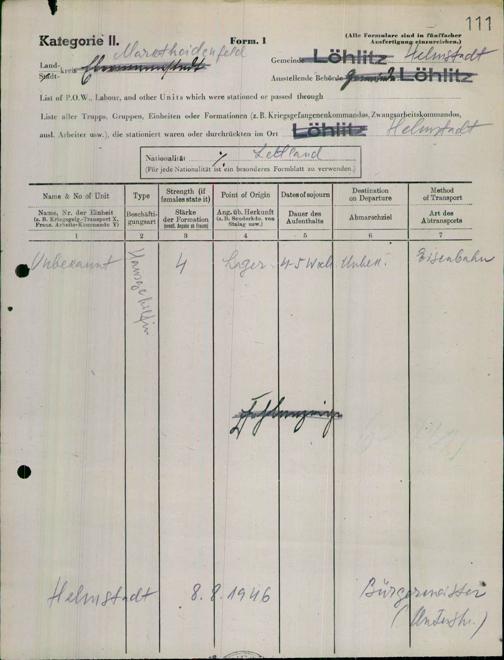 111
Kategorie II.
Form. 1
(Alle Formulare sind in fünffacher
Ausfertigung einzureichen.)
Marktheidenfeld
Land-
Stadt-
kreis
Gemeinde Löhlitz Helmstadt
Ausstellende Behörde Gemeinde Löhlitz
List of P.O.W., Labour, and other Units which were stationed or passed through
Liste aller Trupps, Gruppen, Einheiten oder Formationen (z. B. Kriegsgefangenenkommandos, Zwangsarbeitskommandos,
ausl. Arbeiter usw.), die stationiert waren oder durchrückten im Ort Löhlitz Helmstadt
Nationalität ./. Lettland
(Für jede Nationalität ist ein besonderes Formblatt zu verwenden.)
Name & No of Unit
Type
Strength (if
females state it)
Point of Origin
Dates of sojourn
Destination
on Departure
Method
of Transport
Name, Nr. der Einheit
(z. B. Kriegsgefg.-Transport X,
Franz. Arbeits-Kommando Y)
Beschäfti-
gungsart
Stärke
der Formation
(event. Angabe ob Frauen)
Ang. üb. Herkunft
(z. B. Sonderkdo. von
Stalag usw.)
Dauer des
Aufenthalts
Abmarschziel
Art des
Abtransports
1 2 3 4 5 6 7
Unbekannt Hausgehilfin 4 Lager 4-5 Woch. Unbek. Eisenbahn
Helmstadt 8.8.1946 Bürgermeister
(Unterschr.)